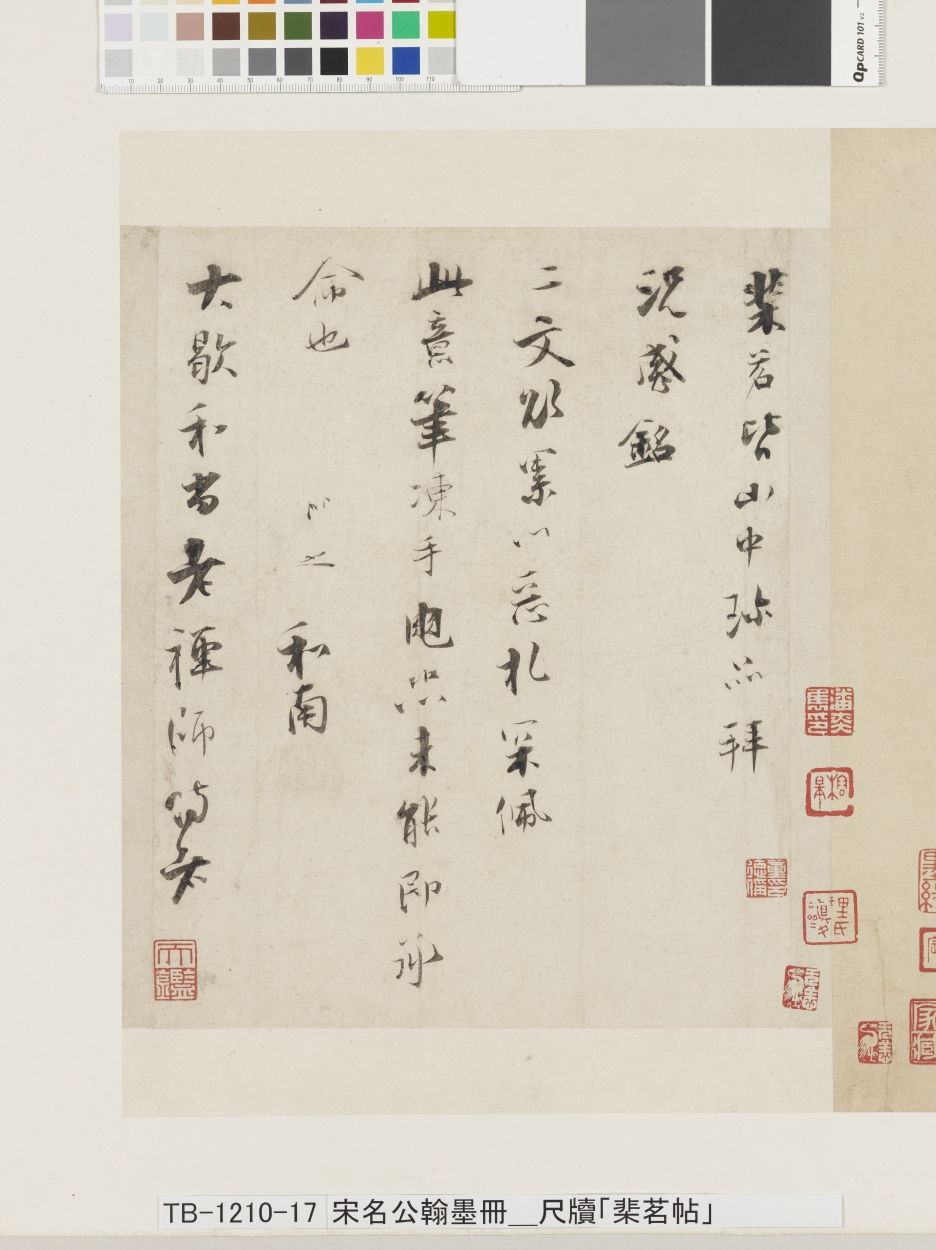 棐茗皆山中珍品拜
況感銘
二文欲累以惡札罙佩
此意筆凍手龜恐未能即承
命也 即之 和南
大歇和尚老禪師侍者
TB-1210-17 宋名公翰墨冊__尺牘「棐茗帖」
QPCARD 101 v2
10 20 30 40 50 60 70 80 90 100 110